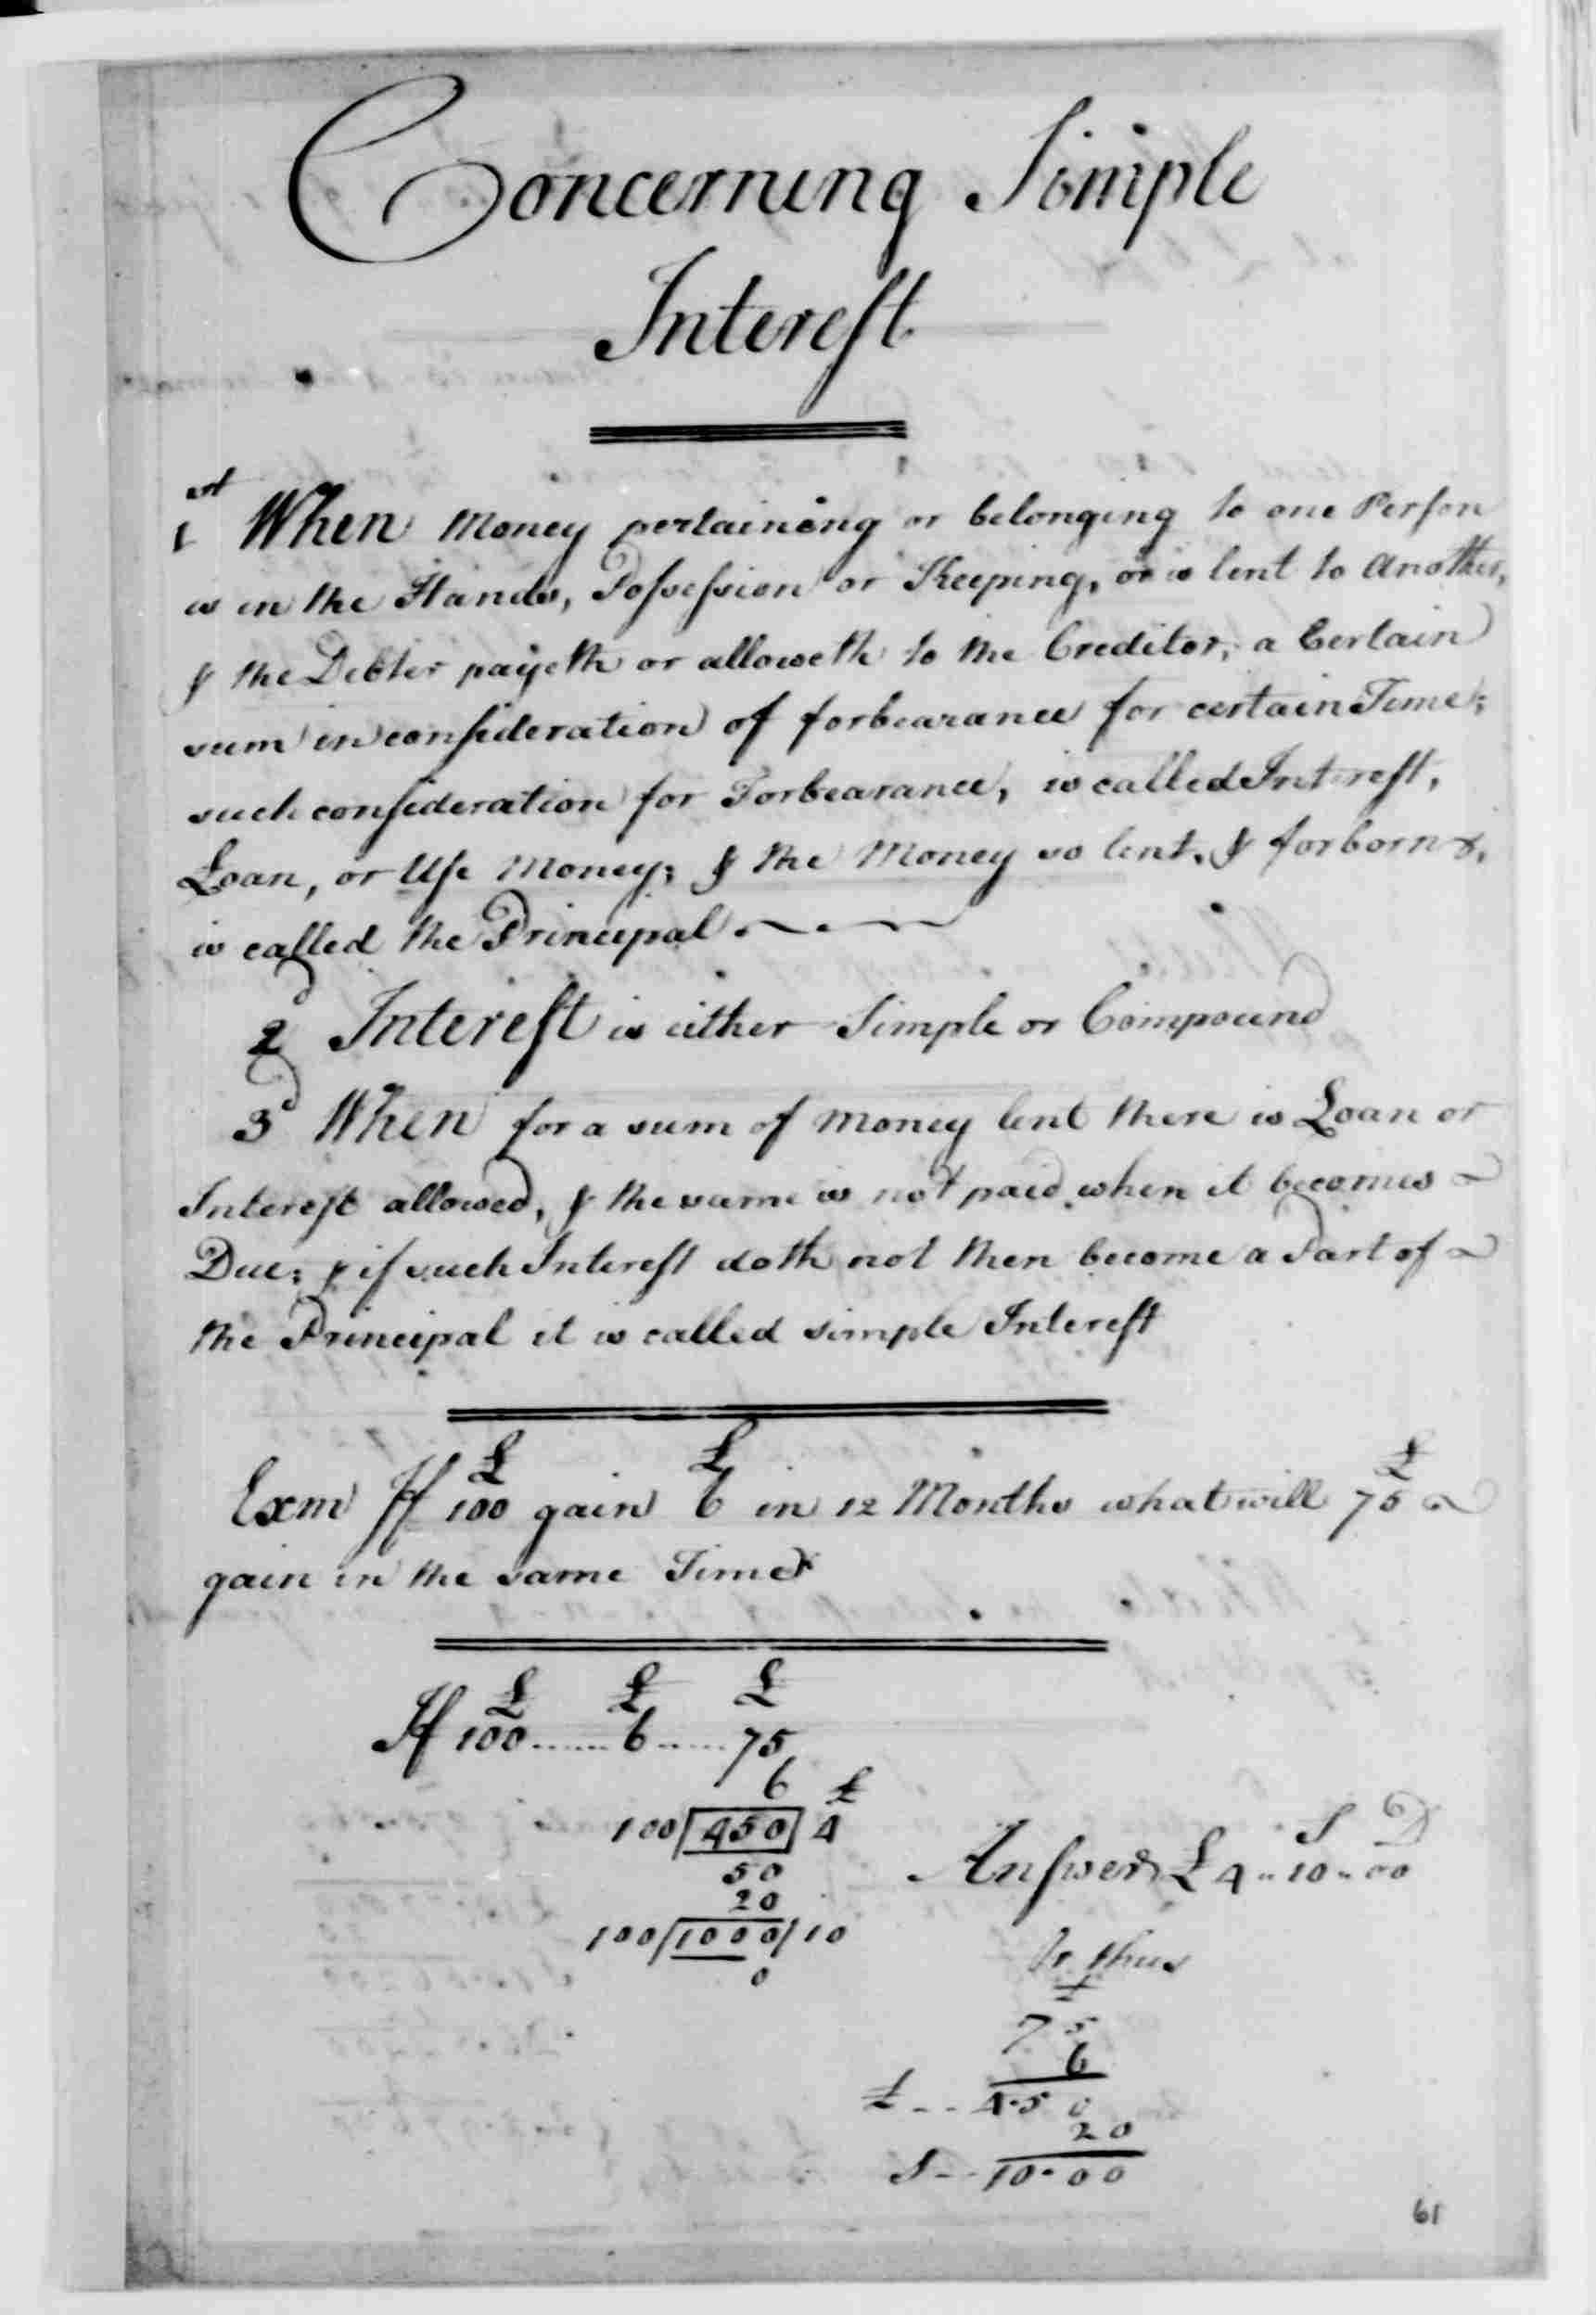 Concerning Simple
Interest
1st When Money pertaining or belonging to one Person
is in the Hands, Possession or Keeping, or is lent to Another,
& the Debter payeth or alloweth to the Creditor, a Certain
sum in consideration of forbearance for certain Time;
such consideration for Forbearance, is called Interest,
Loan, or Use Money; & the Money so lent, & forborne,
is called the Principal
2d Interest is either Simple or Compound
3d When for a sum of Money lent there is Loan or
Interest allowed, & the same is not paid when it becomes
Due; & if such Interest doth not then become a Part of
the Principal it is called simple Interest
£ £ £
Exm If 100 gain 6 in 12 Months what will 75
gain in the same Time
£ £ £
If 100......6.....75
6 £
100 | 450 | 4
50
20
100 | 1000 | 10
0
S D
Answer £ 4 .. 10 .. 00
Or thus
£
75
6
£ .. 4.50
20
S .. 10.00
61